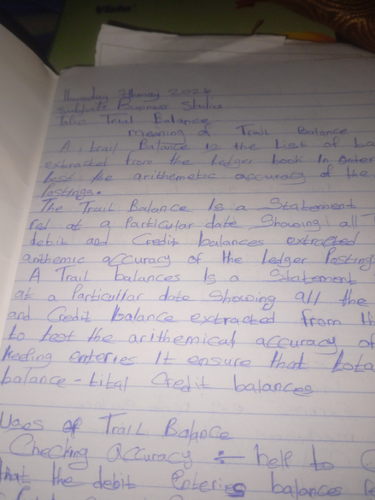 Thursday 2024
Subject: Business Studies
Trail Balance
meaning of Trail Balance
A trail Balance is the List of
extracted from the Ledger book In
test the arithemetic accuracy of the
Postings.
The Trail Balance Is a Statement
at a Particular date Showing all
debit and Credit balances extracted
arithemic accuracy of the Ledger Posting
A Trail balances Is a Statement
at a Particular date Showing all the
and Credit balance extracted from
to test the arithemical accuracy of
keeping enteries It ensure that
balance - Credit balances
Uses of Trail Balance
Checking Accuracy ÷ help to
that the debit balances